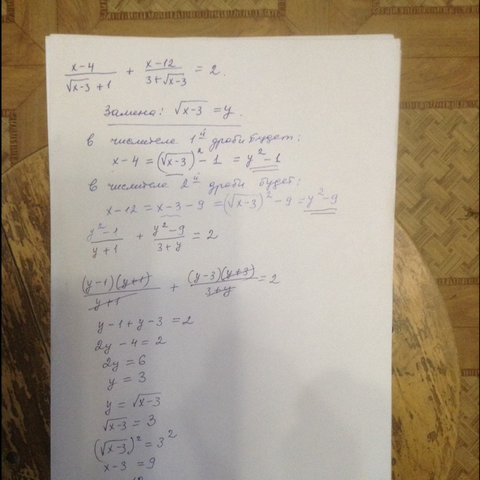 (x-4)/(√(x-3) + 1) + (x-12)/(3+√(x-3)) = 2.
Замена: √(x-3) = y.
в числителе 1ой дроби будет:
x-4 = (√(x-3))² - 1 = y²-1
в числителе 2ой дроби будет:
x-12 = x-3-9 = (√(x-3))² -9 = y²-9
(y²-1)/(y+1) + (y²-9)/(3+y) = 2
((y-1)(y+1))/(y+1) + ((y-3)(y+3))/(3+y) = 2
y-1+y-3 = 2
2y-4 = 2
2y = 6
y = 3
y = √(x-3)
√(x-3) = 3
(√(x-3))² = 3²
x-3 = 9